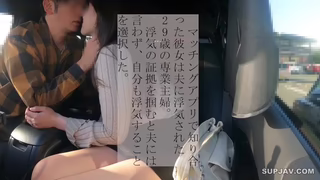 マッチングアプリで知り合
った彼女は夫に浮気された
２９歳の専業主婦。
浮気の証拠を掴むと夫には
言わず、自分も浮気すること
を選択した。
SUPJAV.COM